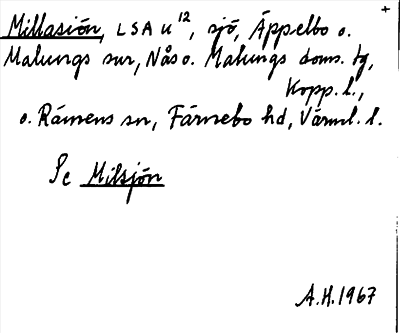 +
Millasjön, LSA u¹², sjö, Äppelbo o.
Malungs snr, Nås o. Malungs doms. tg,
Kopp. l.,
o. Rämens sn, Färnebo hd, Värml. l.
Se Milsjön
A.H. 1967